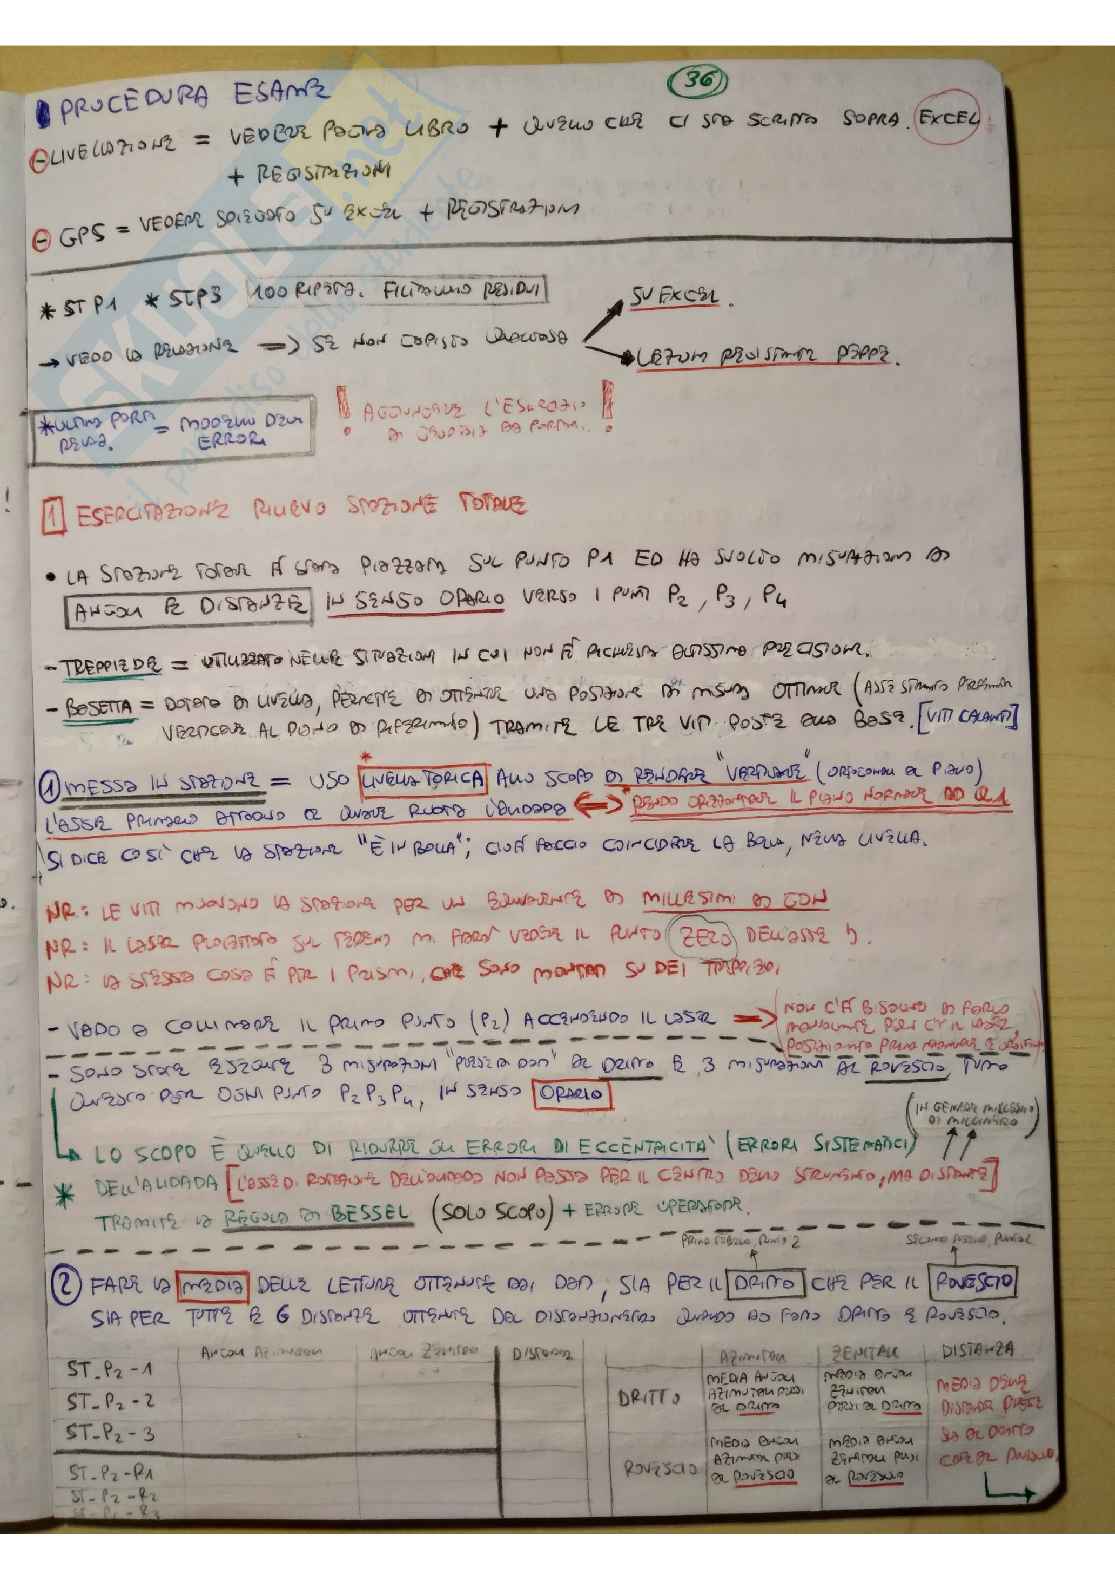 36
PROCEDURA ESAME
LIVELLAZIONE = VEDERE PAGINA LIBRO + QUELLO CHE CI STA SCRITTO SOPRA. EXCEL
+ REGISTRAZIONI
GPS = VEDERE SU EXCEL + REGISTRAZIONI
* STP1 * STP3 100 RIPETA. RESIDUI
→ VEDO LA RELAZIONE => SE NON CAPISCO QUALCOSA
SU EXCEL.
*ULTIMA PARTE = MODELLO DEGLI
RELAZ. ERRORI
! AGGIUNGERE L'ESERCIZIO !
1 ESERCITAZIONE RILIEVO STAZIONE TOTALE
• LA STAZIONE TOTALE È STATA PIAZZATA SUL PUNTO P1 ED HA SVOLTO MISURAZIONI DI
ANGOLI E DISTANZE IN SENSO ORARIO VERSO I PUNTI P2, P3, P4
- TREPPIEDE = UTILIZZATO NELLE SITUAZIONI IN CUI NON È RICHIESTA ALTISSIMA PRECISIONE.
- BASETTA = DOTATA DI LIVELLA, PERMETTE DI OTTENERE UNA POSIZIONE DI MISURA OTTIMALE (ASSE STRUMENTO
VERTICALE AL PIANO DI RIFERIMENTO) TRAMITE LE TRE VITI POSTE ALLA BASE. [VITI CALANTI]
1 MESSA IN STAZIONE = USO LIVELLA TORICA ALLO SCOPO DI RENDERE "VERTICALE" (ORTOGONALE AL PIANO)
L'ASSE PRIMARIO ATTORNO AL QUALE RUOTA L'ALIDADA <=> *RENDO ORIZZONTALE IL PIANO NORMALE AD a1
SI DICE COSÌ CHE LA STAZIONE "È IN BOLLA"; CIOÈ FACCIO COINCIDERE LA BOLLA, NELLA LIVELLA.
NB: LE VITI MUOVONO LA STAZIONE PER UN EQUIVALENTE DI MILLESIMI DI GON
NB: IL LASER PROIETTATO SUL TERRENO MI FARÀ VEDERE IL PUNTO ZERO DELL'ASSE
NB: LA STESSA COSA È PER I PRISMI, CHE SONO MONTATI SU DEI TREPPIEDI
- VADO A COLLIMARE IL PRIMO PUNTO (P2) ACCENDENDO IL LASER => NON C'È BISOGNO DI FARLO
MANUALMENTE PERCHÉ IL LASER
- SONO STATE ESEGUITE 3 MISURAZIONI AL DRITTO E 3 MISURAZIONI AL ROVESCIO, TUTTO
QUESTO PER OGNI PUNTO P2 P3 P4, IN SENSO ORARIO
(IN GENERE MILLESIMO
DI MILLIMETRO)
LO SCOPO È QUELLO DI RIDURRE GLI ERRORI DI ECCENTRICITÀ (ERRORI SISTEMATICI)
* DELL'ALIDADA [L'ASSE DI ROTAZIONE DELL'ALIDADA NON PASSA PER IL CENTRO DELLO STRUMENTO, MA DISTANTE]
TRAMITE LA REGOLA DI BESSEL (SOLO SCOPO) + ERRORE OPERATORE.
2 FARE LA MEDIA DELLE LETTURE OTTENUTE DAI DATI, SIA PER IL DRITTO CHE PER IL ROVESCIO
SIA PER TUTTE E 6 DISTANZE OTTENUTE DAL DISTANZIOMETRO QUANDO HO FATTO DRITTO E ROVESCIO.
ANGOLI AZIMUTALI ANGOLI ZENITALI DISTANZE
ST_P2-1
ST_P2-2
ST_P2-3
ST_P2-R1
ST_P2-R2
AZIMUTALI ZENITALI DISTANZA
DRITTO
MEDIA ANGOLI
AZIMUTALI PRESI
AL DRITTO
MEDIA ANGOLI
ZENITALI
PRESI AL DRITTO
MEDIA DELLE
DISTANZE PRESE
SIA AL DRITTO
CHE AL ROVESCIO
ROVESCIO
MEDIA ANGOLI
AZIMUTALI PRESI
AL ROVESCIO
MEDIA ANGOLI
ZENITALI PRESI
AL ROVESCIO
SKUOLA.net